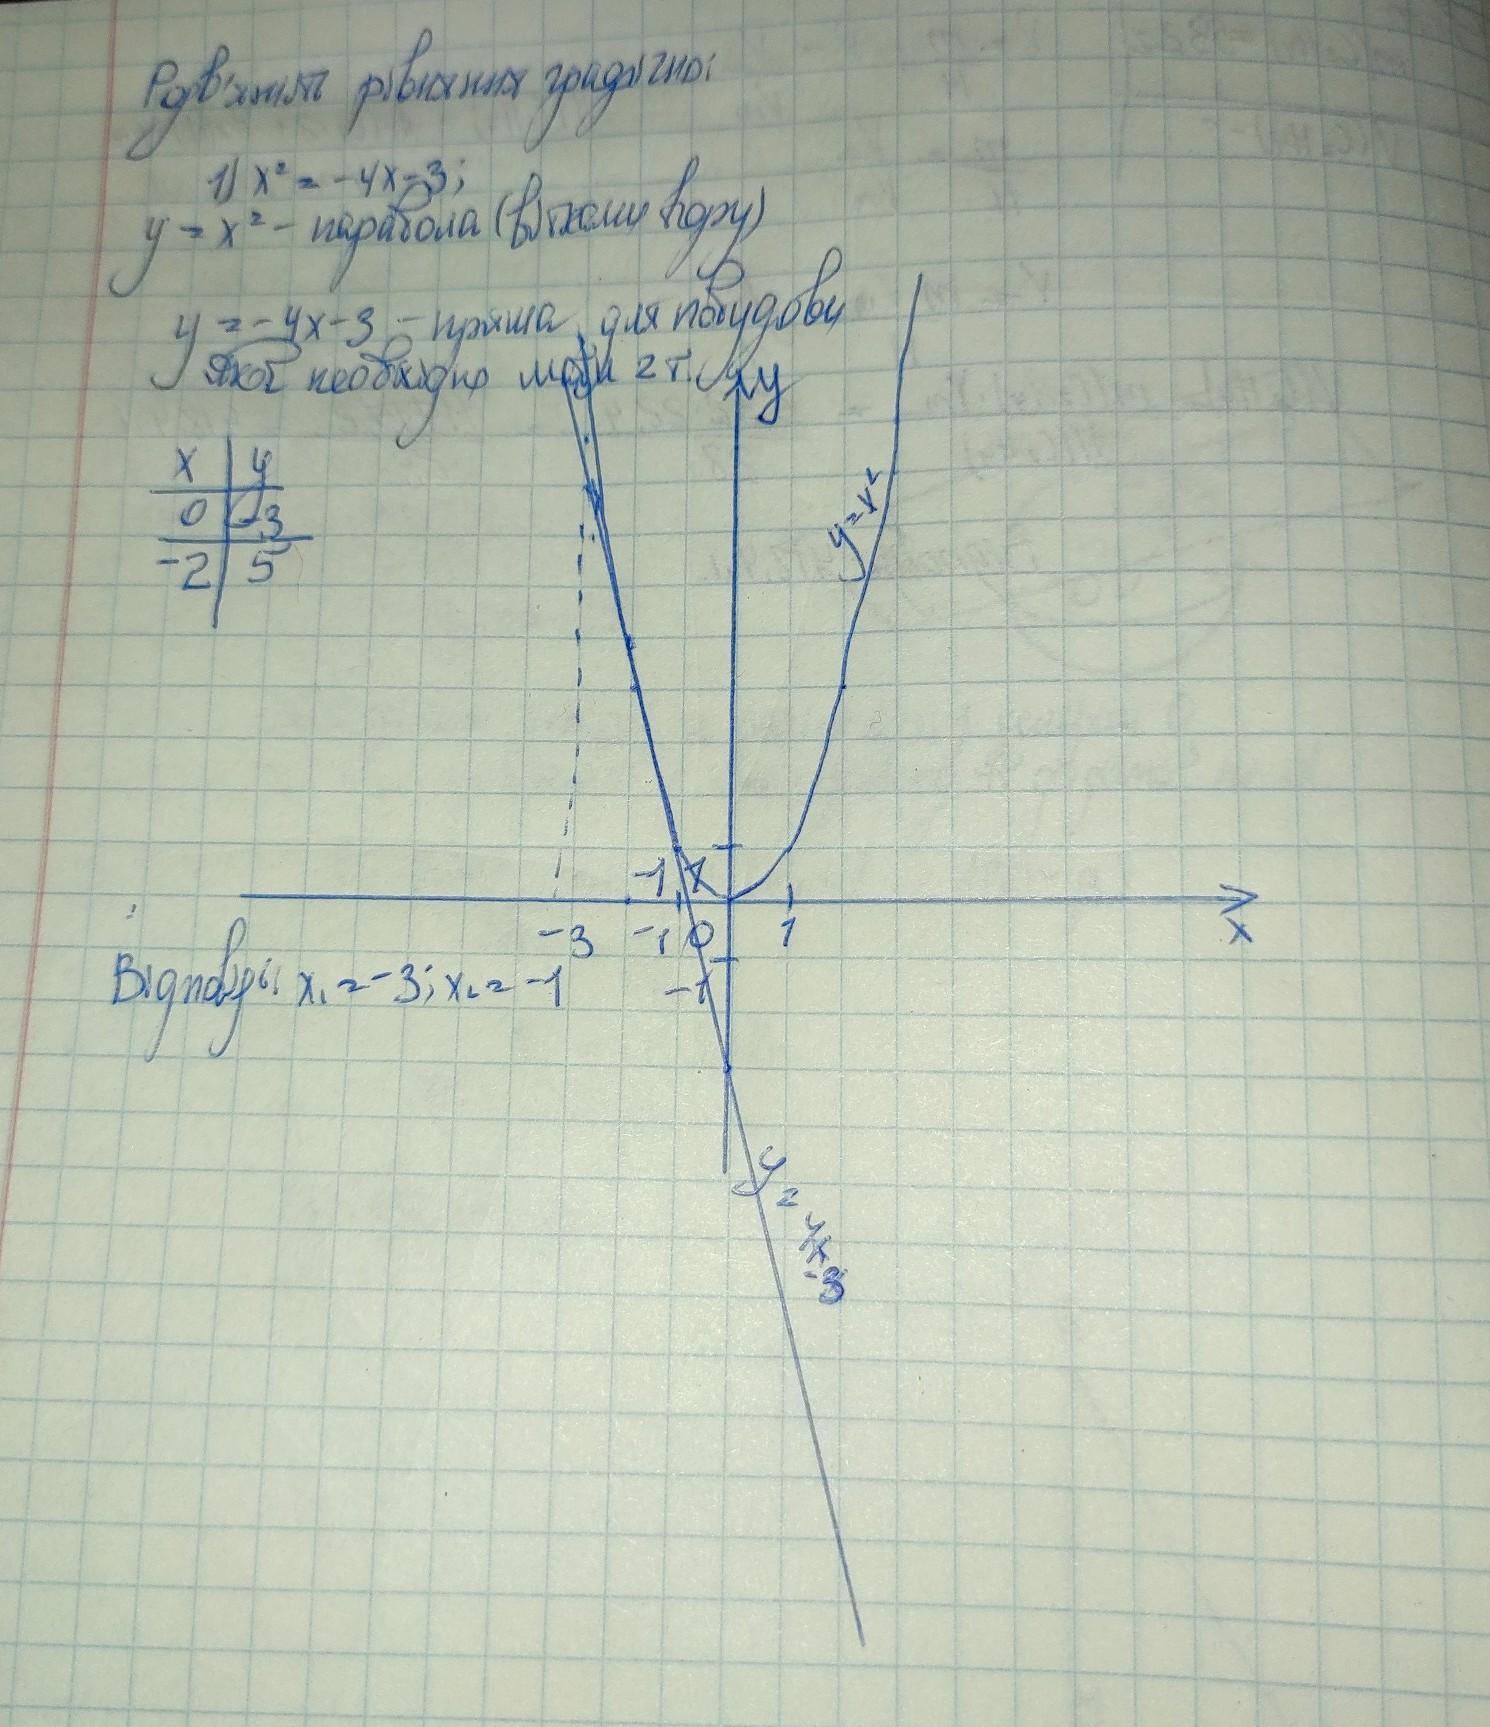 Розв'яжіть рівняння графічно:
1) x² = -4x-3;
y = x² - парабола (вітками вгору)
y = -4x-3 - пряма, для побудови
якої необхідно мати 2 т.
y
x y
0 -3
-2 5
y=x²
-1 1
-3 -1 0 1
x
Відповідь: x₁ = -3; x₂ = -1
-1
y = 4x -3